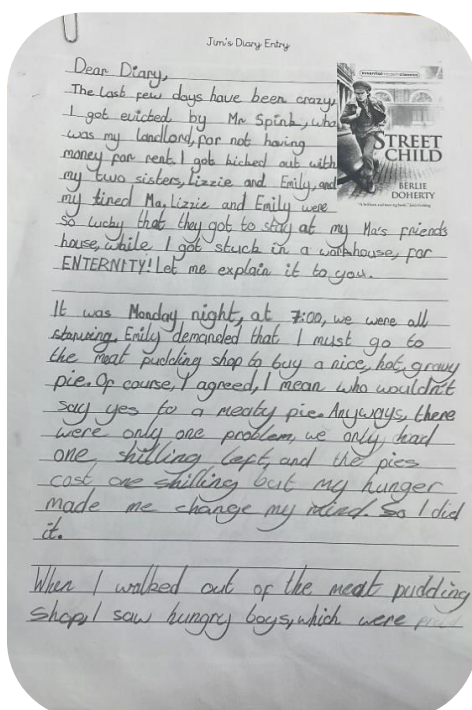 Jim's Diary Entry
Dear Diary,
The last few days have been crazy,
I got evicted by Mr Spink, who
was my landlord, for not having
money for rent. I got kicked out with
my two sisters, Lizzie and Emily, and
my tired Ma. Lizzie and Emily were
so lucky that they got to stay at my Ma's friends
house, while I got stuck in a workhouse, for
ENTERNITY! Let me explain it to you.
STREET
CHILD
BERLIE
DOHERTY
It was Monday night, at 7:00, we were all
starving. Emily demanded that I must go to
the meat pudding shop to buy a nice, hot, gravy
pie. Of course, I agreed, I mean who wouldn't
say yes to a meaty pie. Anyways, there
were only one problem, we only had
one shilling left, and the pies
cost one shilling but my hunger
made me change my mind. So I did
it.
When I walked out of the meat pudding
shop, I saw hungry boys, which were